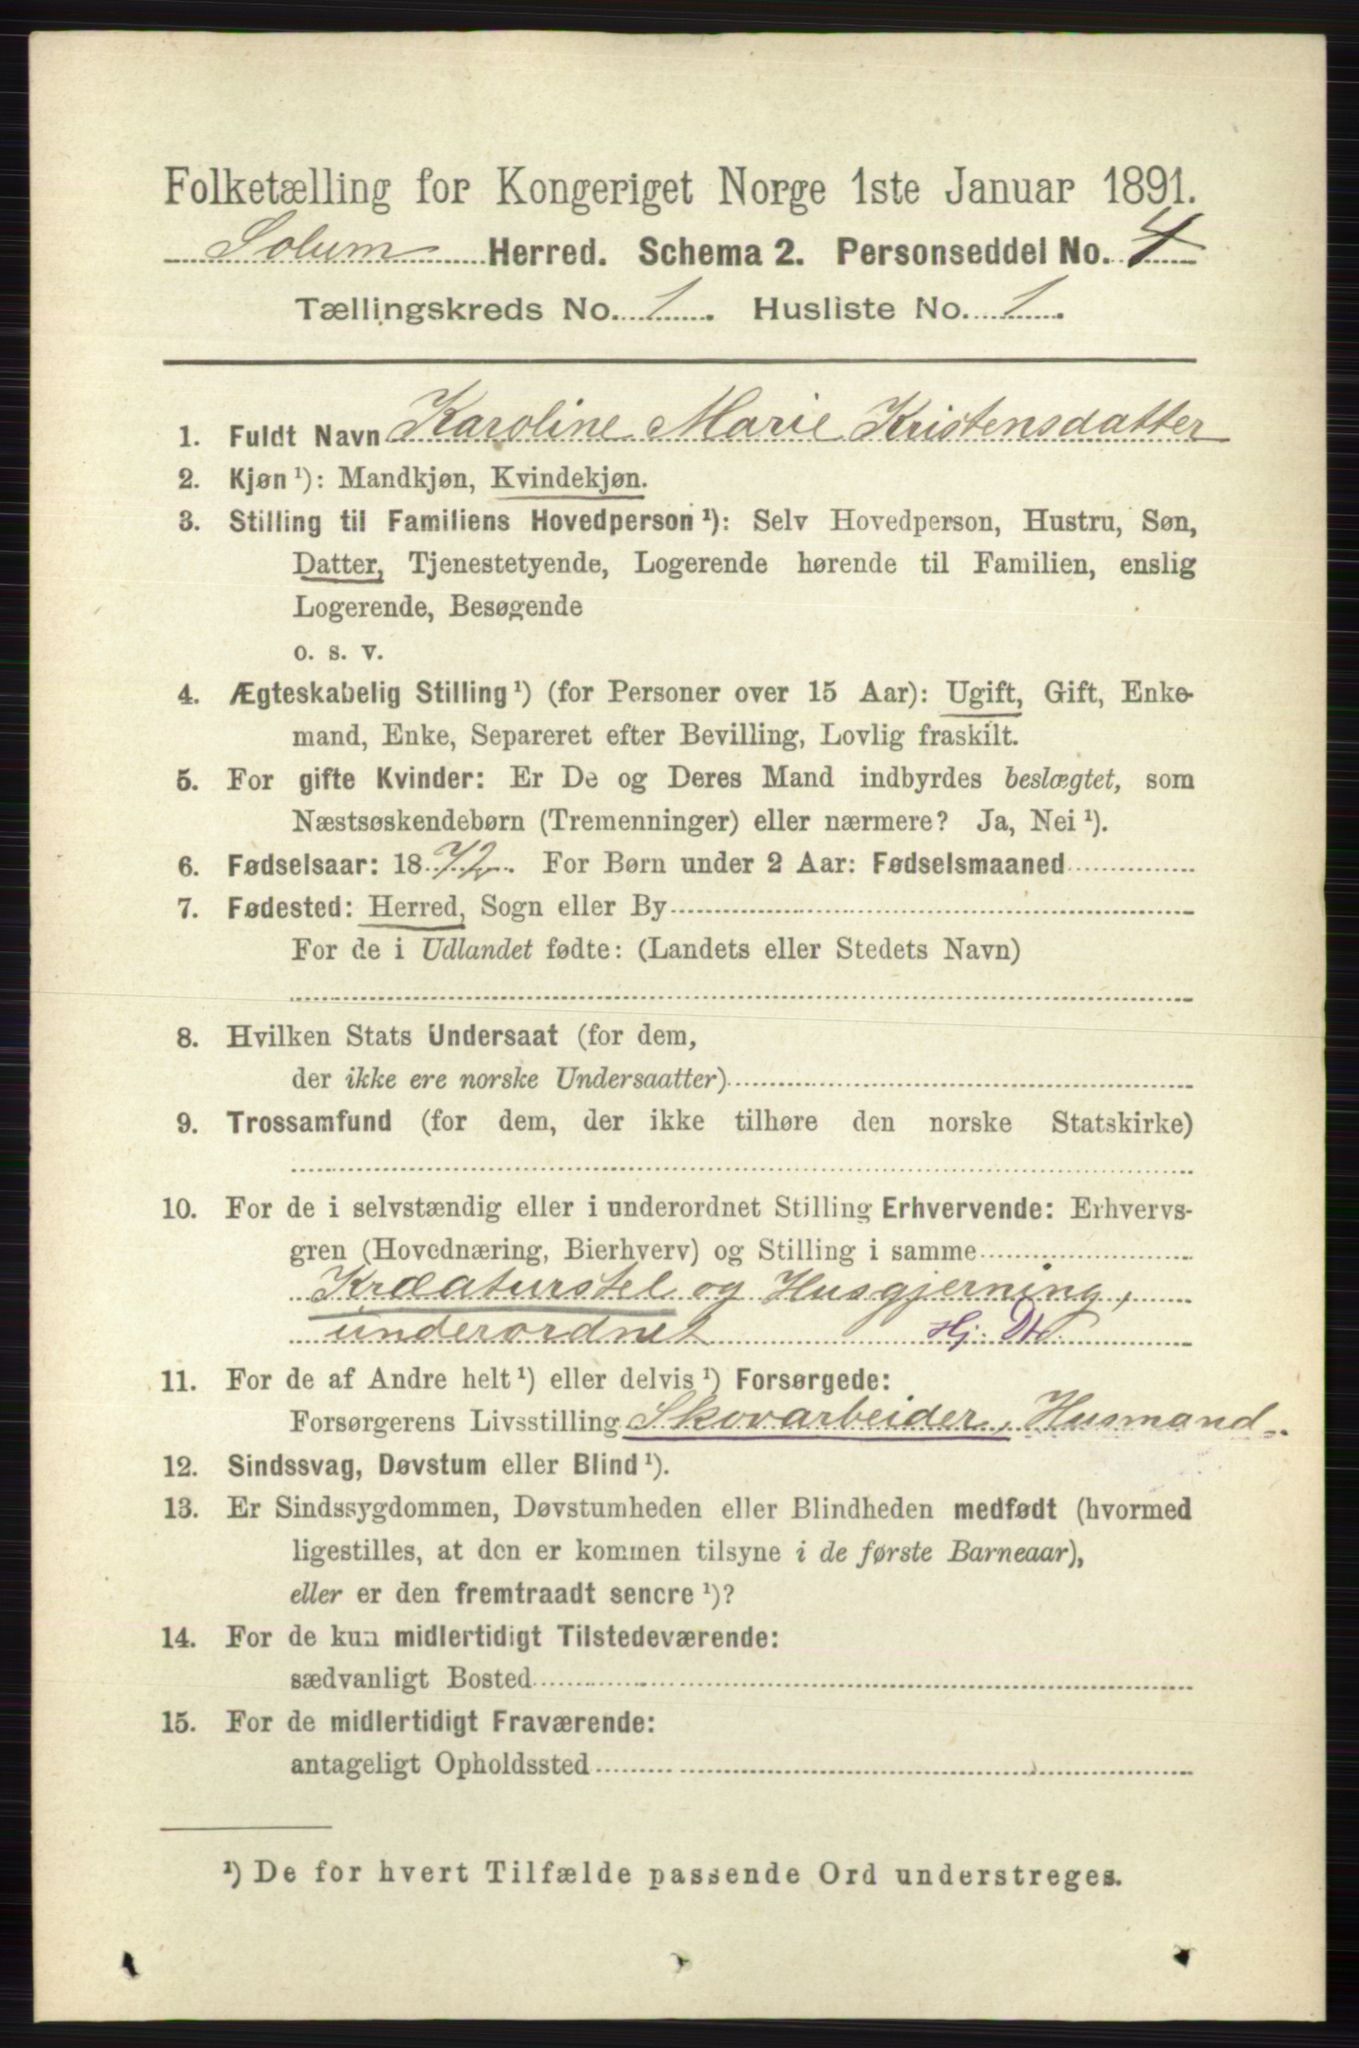 Folketælling for Kongeriget Norge 1ste Januar 1891.
Solum Herred. Schema 2. Personseddel No. 4
Tællingskreds No. 1. Husliste No. 1.
1. Fuldt Navn Karoline Marie Kristensdatter
2. Kjøn ¹): Mandkjøn, Kvindekjøn.
3. Stilling til Familiens Hovedperson ¹): Selv Hovedperson, Hustru, Søn,
Datter, Tjenestetyende, Logerende hørende til Familien, enslig
Logerende, Besøgende
o. s. v.
4. Ægteskabelig Stilling ¹) (for Personer over 15 Aar): Ugift, Gift, Enke-
mand, Enke, Separeret efter Bevilling, Lovlig fraskilt.
5. For gifte Kvinder: Er De og Deres Mand indbyrdes beslægtet, som
Næstsøskendebørn (Tremenninger) eller nærmere? Ja, Nei ¹).
6. Fødselsaar: 1872. For Børn under 2 Aar: Fødselsmaaned
7. Fødested: Herred, Sogn eller By
For de i Udlandet fødte: (Landets eller Stedets Navn)
8. Hvilken Stats Undersaat (for dem,
der ikke ere norske Undersaatter)
9. Trossamfund (for dem, der ikke tilhøre den norske Statskirke)
10. For de i selvstændig eller i underordnet Stilling Erhvervende: Erhvervs-
gren (Hovednæring, Bierhverv) og Stilling i samme
Kræaturstel og Husgjerning,
underordnet Hj. Dtr
11. For de af Andre helt ¹) eller delvis ¹) Forsørgede:
Forsørgerens Livsstilling Skovarbeider, Husmand.
12. Sindssvag, Døvstum eller Blind ¹).
13. Er Sindssygdommen, Døvstumheden eller Blindheden medfødt (hvormed
ligestilles, at den er kommen tilsyne i de første Barneaar),
eller er den fremtraadt senere ¹)?
14. For de kun midlertidigt Tilstedeværende:
sædvanligt Bosted
15. For de midlertidigt Fraværende:
antageligt Opholdssted
¹) De for hvert Tilfælde passende Ord understreges.